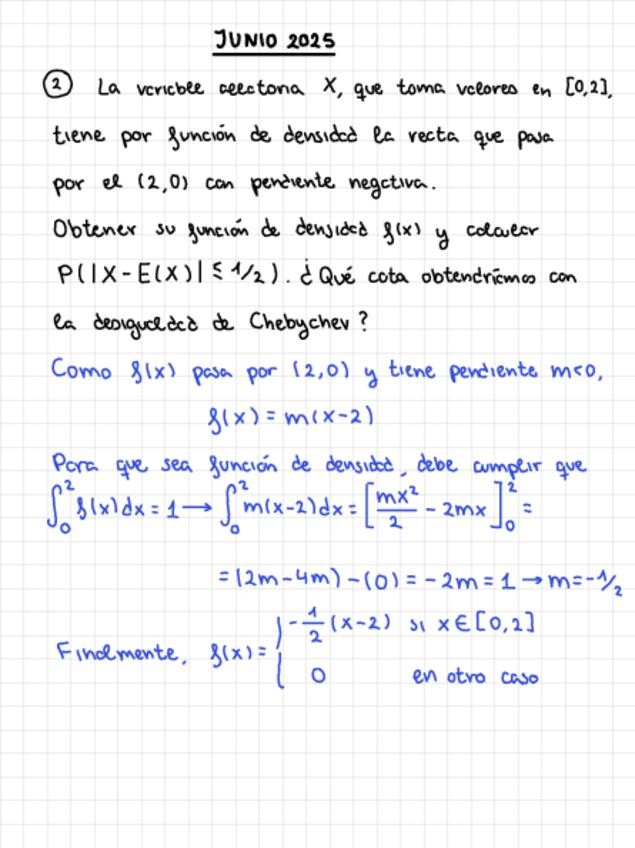 JUNIO 2025
② La variable aleatoria X, que toma valores en [0,2],
tiene por función de densidad la recta que pasa
por el (2,0) con pendiente negativa.
Obtener su función de densidad f(x) y calcular
P(|X-E(X)| ≤ 1/2). ¿Qué cota obtendríamos con
la desigualdad de Chebychev?
Como f(x) pasa por (2,0) y tiene pendiente m<0,
f(x) = m(x-2)
Para que sea función de densidad, debe cumplir que
∫₀² f(x)dx = 1 → ∫₀² m(x-2)dx = [mx²/2 - 2mx]₀² =
= (2m-4m)-(0) = -2m = 1 → m=-1/2
Finalmente, f(x) = { -1/2 (x-2) si x∈[0,2]
0 en otro caso